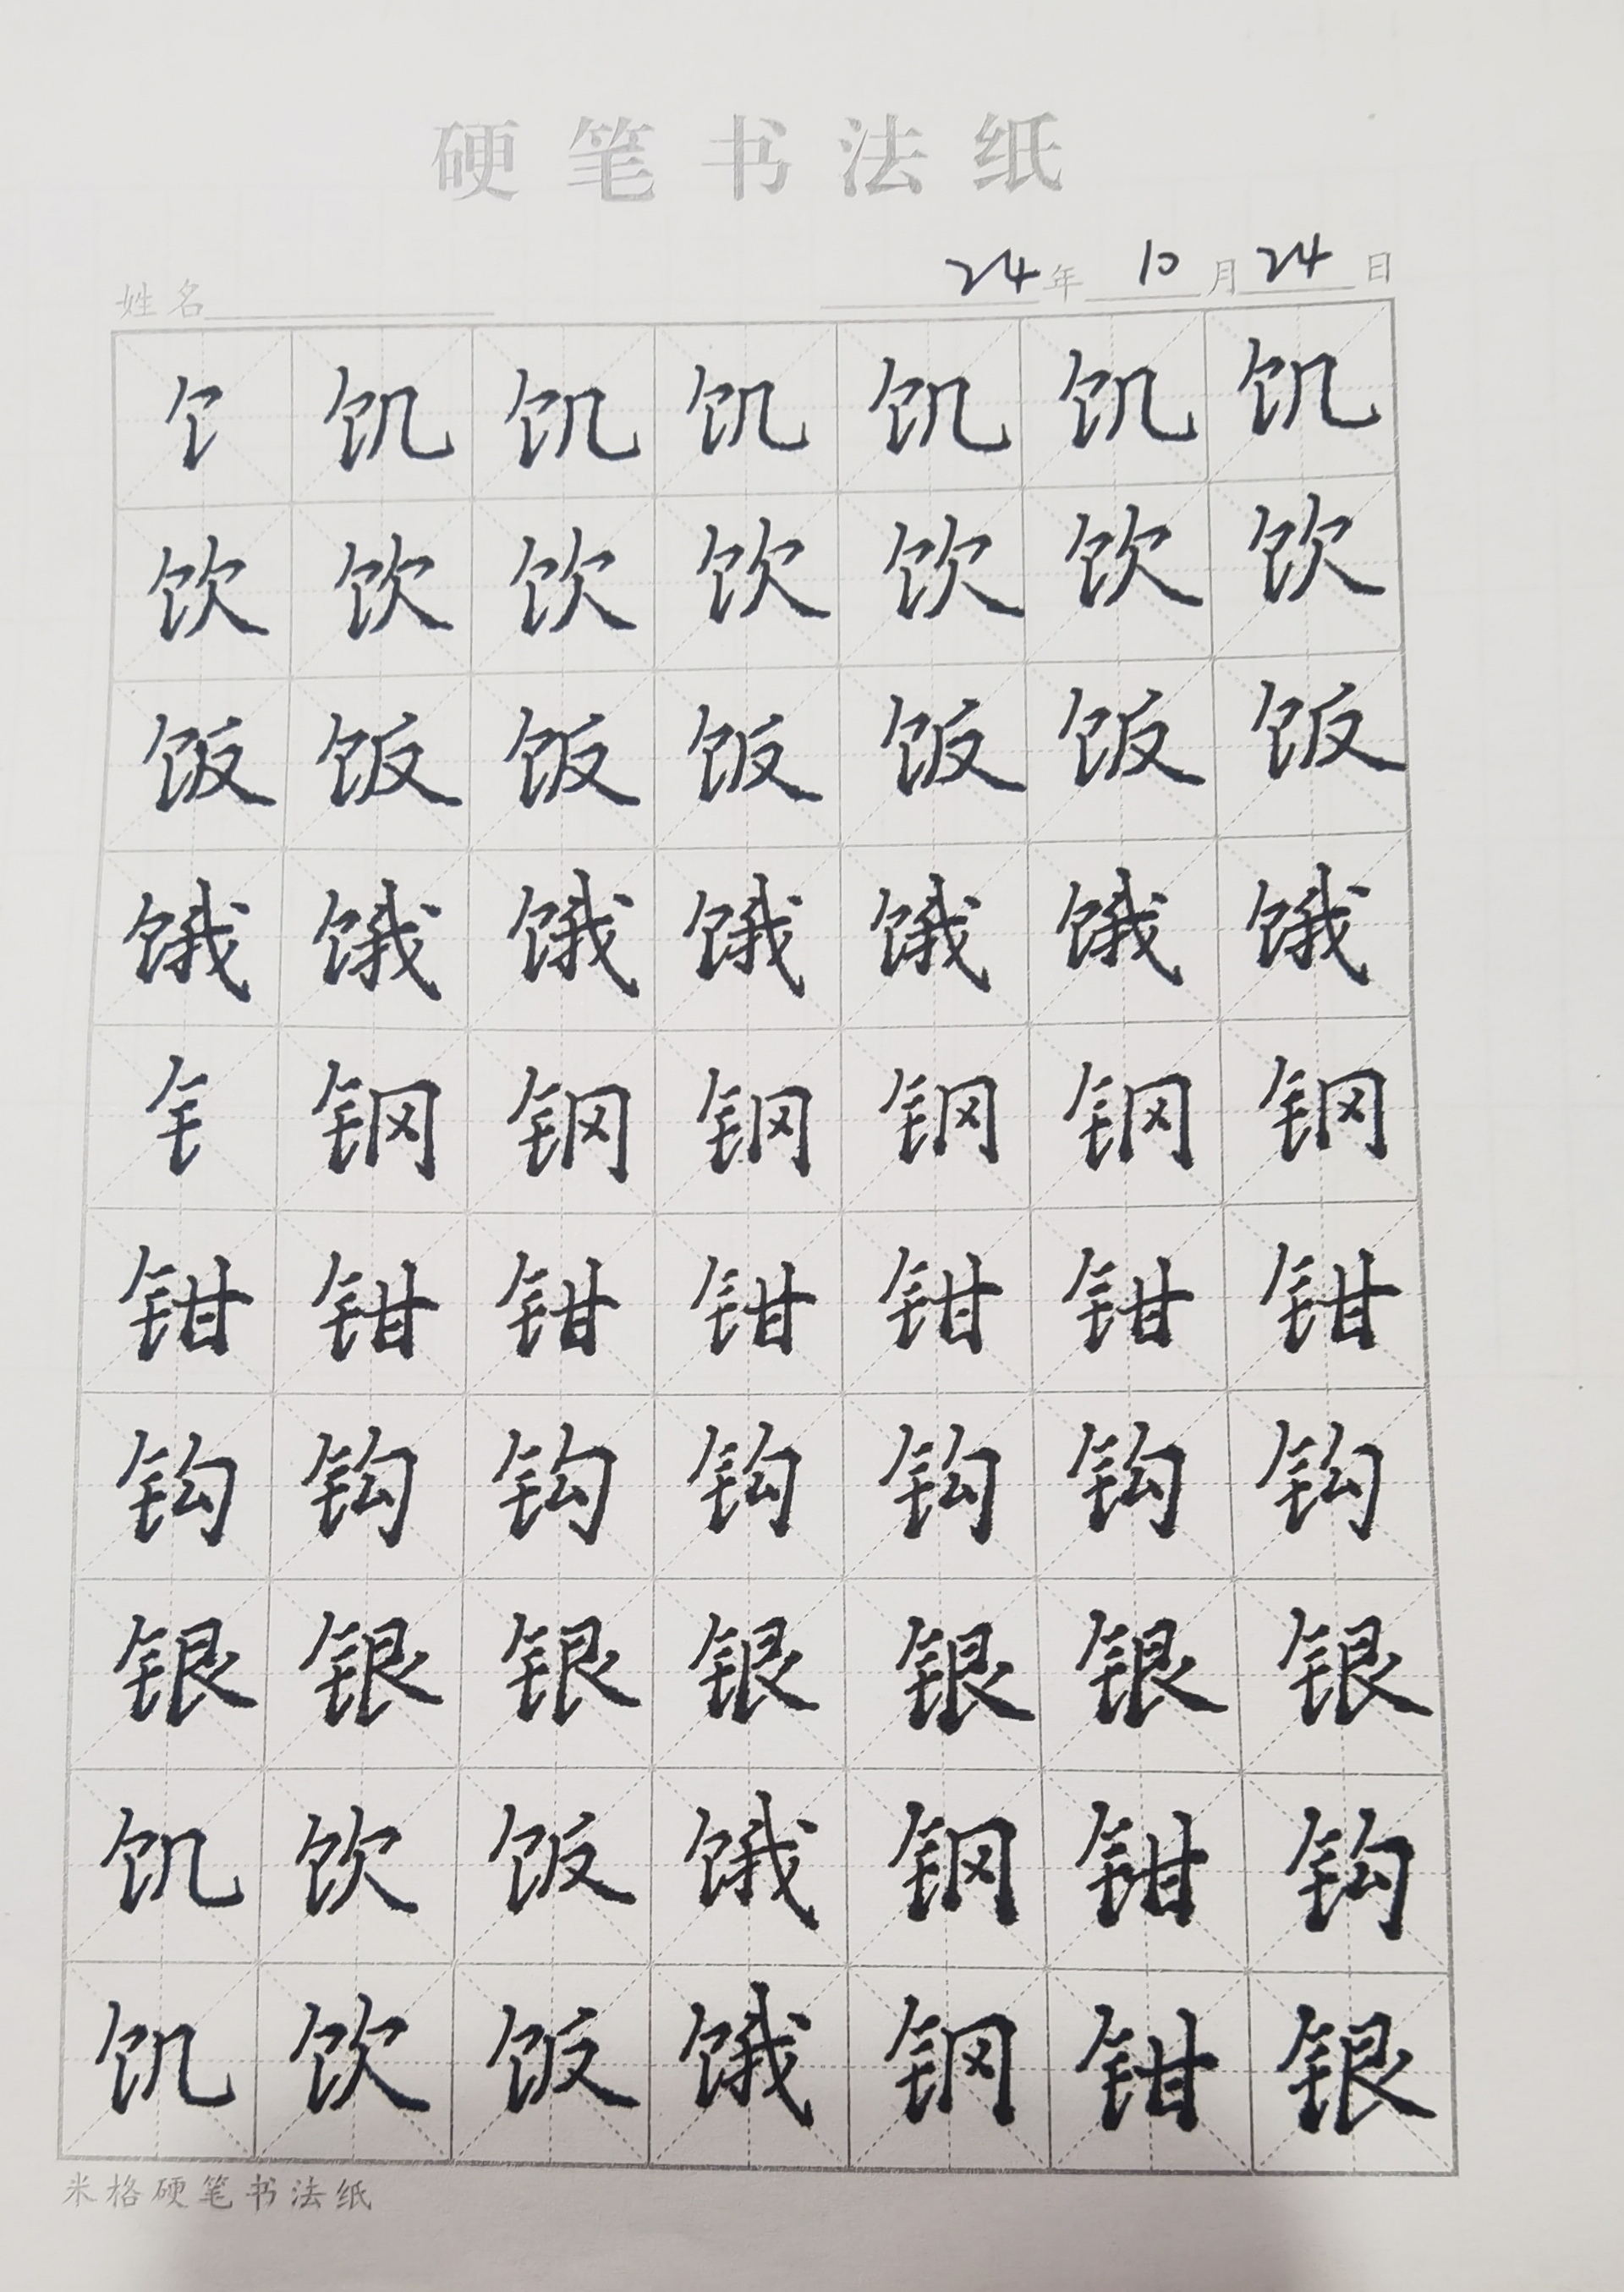 硬笔书法纸
姓名 24年10月24日
饣饥饥饥饥饥饥
饮饮饮饮饮饮饮
饭饭饭饭饭饭饭
饿饿饿饿饿饿饿
钅钢钢钢钢钢钢
钳钳钳钳钳钳钳
钩钩钩钩钩钩钩
银银银银银银银
饥饮饭饿钢钳钩
饥饮饭饿钢钳银
米格硬笔书法纸